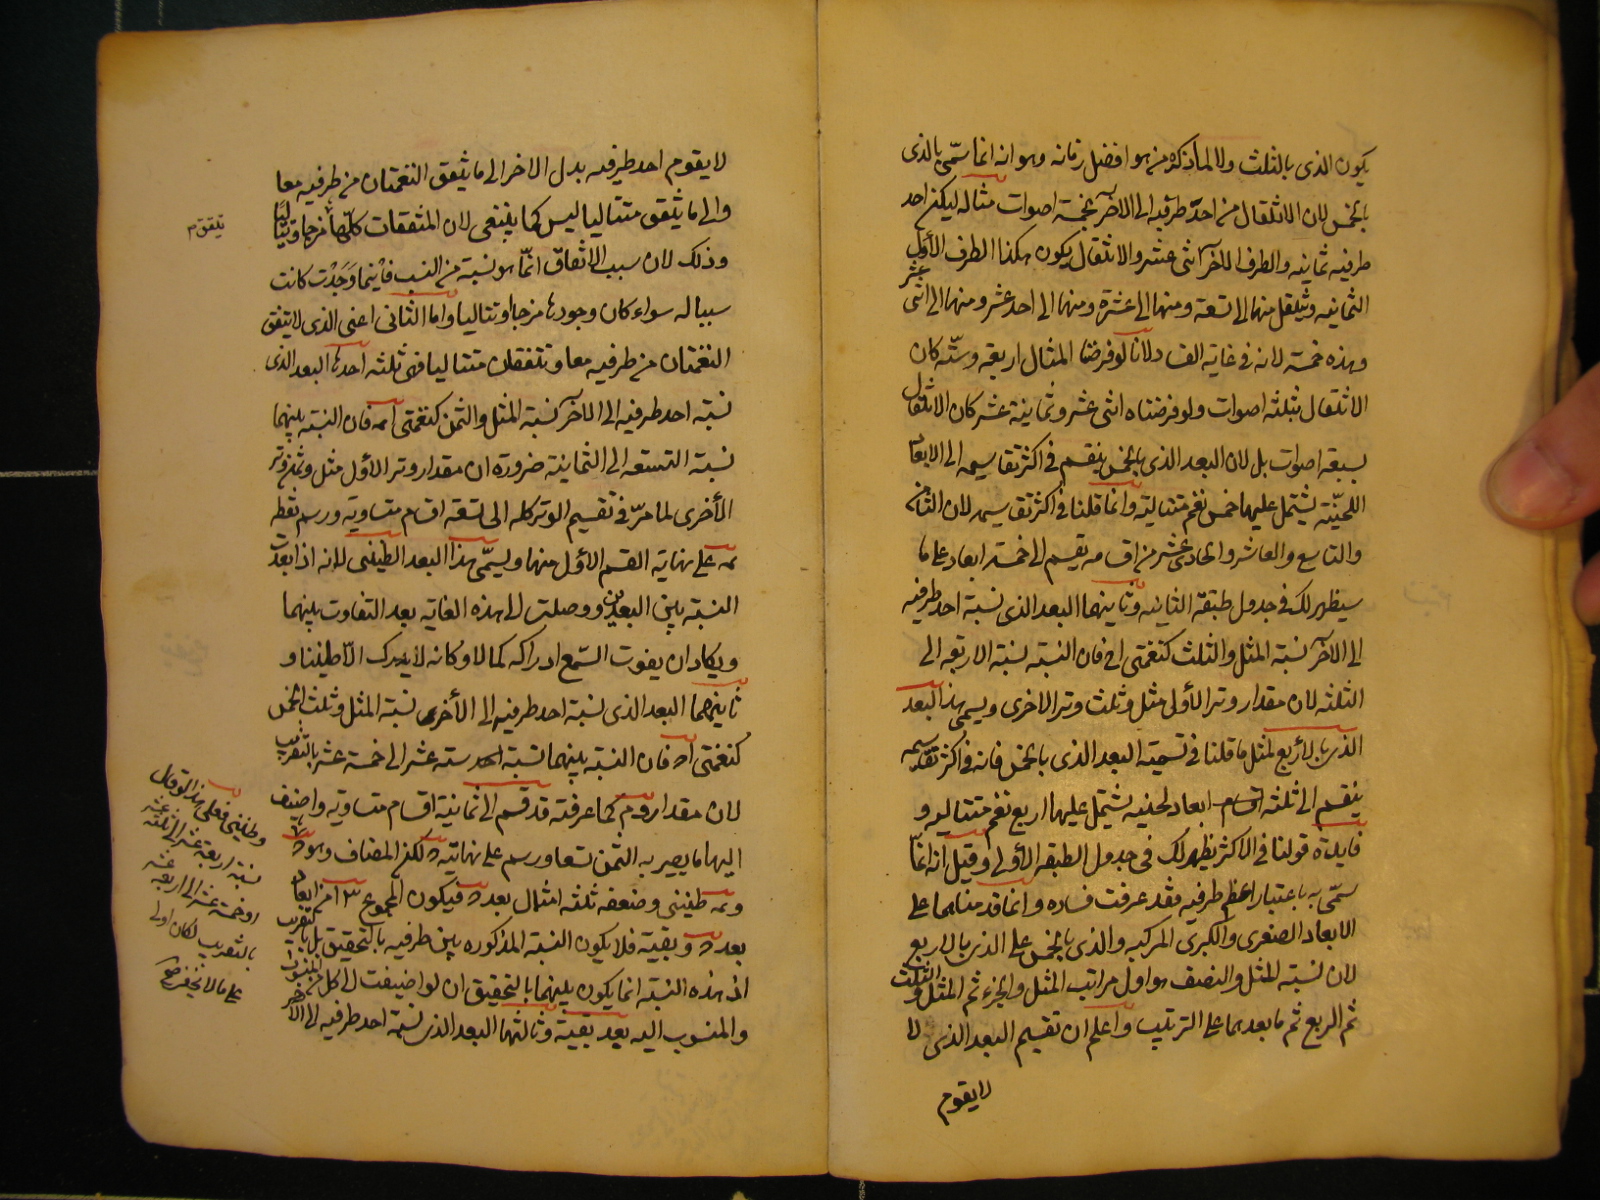 يكون الذى بالثلث ولا لما ذكره من هو افضل زمانه وهو انه انما سمّى بالذى
بالخمس لان الانتقال من احد طرفيه الى الآخر بخمسة اصوات مثاله ليكن احد
طرفيه ثمانيه والطرف الآخر اثنى عشر والانتقال يكون هكذا الطرف الأول
الثمانيه وينتقل منها الى تسعة ومنها الى عشرة ومنها الى احد عشر ومنها الى اثنى عشر
وهذه خمسة لانه فى غاية الفساد لانا لو فرضنا المثال اربعة وستّه كان
الانتقال بثلثه اصوات ولو فرضناه اثنى عشر وثمانية عشر كان الانتقال
بسبعة اصوات بل لان البعد الذى بالخمس ينقسم فى اكثر تقاسيمه الى الابعاد
اللحنيّة يشتمل عليها خمس نغم متتالية وانما قلنا فى اكثر تقاسيمه لان الثامن
والتاسع والعاشر والحادى عشر من اقسامه ينقسم الى خمسة ابعاد على ما
سيظهر لك فى جدول طبقة الثانيه وثانيهما البعد الذى نسبة احد طرفيه
الى الآخر نسبة المثل والثلث كنغمتى اح فان النسبه نسبة الاربعه الى
الثلثه لان مقدار وتر الأولى مثل وثلث وتر الاخرى ويسمى هذا البعد
الذى بالاربع لمثل ما قلنا فى تسمية البعد الذى بالخمس فانه فى اكثر تقاسيمه
ينقسم الى ثلثه اقسام ابعاد لحنيه يشتمل عليها اربع نغم متتاليه و
فايدة قولنا فى الاكثر يظهر لك فى جدول الطبقه الأولى وقيل انه انما
سمّى به باعتبار اعظم طرفيه فقد عرفت فساده وانما قدمناهما على
الابعاد الصغرى والكبرى المركبه والذى بالخمس على الذى بالاربع
لان نسبة المثل والنصف هو اول مراتب المثل والجزء ثم المثل والثلث
ثم الربع ثم ما بعدهما على الترتيب واعلم ان تقسيم البعد الذى لا
لا يقوم
لا يقوم احد طرفيه بدل الاخر الى ما يتفق النغمتان من طرفيه معا
والى ما يتفق متتاليا ليس كما ينبغى لان المتفقات كلّها مزجا وتتاليا
يتفق م
وذلك لان سبب الاتفاق انّما هو نسبة من النسب فأينما وَجَدْت كانت
سببا له سواء كان وجودها مزجا او تتاليا واما الثانى اعنى الذى لا يتفق
النغمتان من طرفيه معا وتتفقان متتاليا فهى ثلثه احدها البعد الذى
نسبة احد طرفيه الى الآخر نسبة المثل والثمن كنغمتى امه فان النسبة بينهما
نسبة التسعه الى الثمانية ضرورة ان مقدار وتر الأول مثل وثمن وتر
الأخرى لما مرّ فى تقسيم الوتر كله الى تسعة اقسام متساويه ورسم نقطه
مه على نهاية القسم الأول منها ويسمّى هذا البعد الطنينى لانه اذا بعدت
النسبة بين البعدين ووصلت الى هذه الغاية بعد التفاوت بينهما
ويكاد ان يفوت السّمع ادراكه كمالا وكانه لا يدرك الّا طنينا و
ثانيهما البعد الذى نسبة احد طرفيه الى الأخرى نسبة المثل وثلث الخمس
كنغمتى فان النسبة بينهما نسبة ستة عشر الى خمسة عشر بالتقريب
لان مقدار كما عرفته قد قسم الى ثمانية اقسام متساويه واضيف
اليها ما يصير به الثمن تسعا ورسم على نهايته لكن المضاف وهو
طنينى وضعفه ثلثه امثال بعد فيكون المجموع ابعاد
بعد وبقية فلا يكون النسبة المذكوره بين طرفيه بالتحقيق بل بالتقريب
اذ هذه النسبة انما يكون بينهما بالتحقيق ان لو اضيفت الى كل من المنسوب
والمنسوب اليه بعد بقية وثالثها البعد الذى نسبة احد طرفيه الى الآخر
وطنينى فعلى هذا لو قال
نسبة اربعة عشر الى ثلثة عشر
او خمسة عشر الى اربعة عشر
بالتقريب لكان اولى
على ما لا يخفى صح